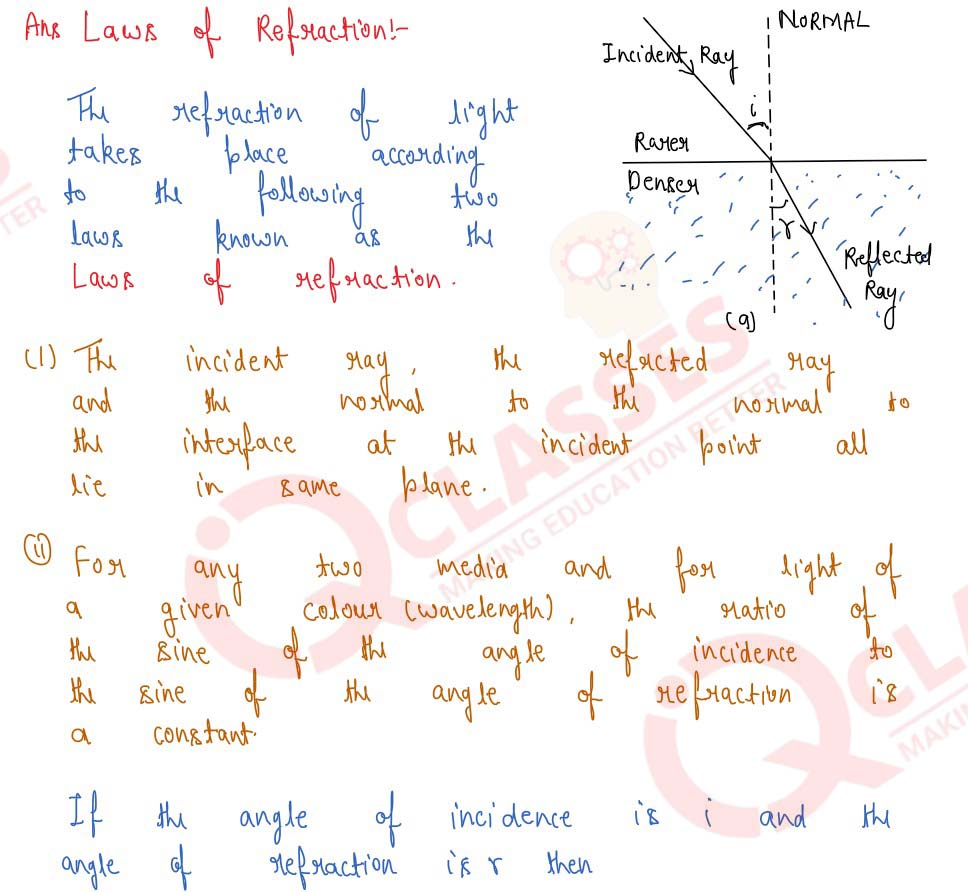 Ans Laws of Refraction!-
The refraction of light
takes place according
to the following two
laws known as the
Laws of refraction.
NORMAL
Incident Ray
i
Rarer
Denser
r
Reflected
Ray
(a)
(1) The incident ray, the refrcted ray
and the normal to the normal to
the interface at the incident point all
lie in same plane.
(ii) For any two media and for light of
a given colour (wavelength), the ratio of
the sine of the angle of incidence to
the sine of the angle of refraction is
a constant.
If the angle of incidence is i and the
angle of refraction is r then
IQ CLASSES
MAKING EDUCATION BETTER